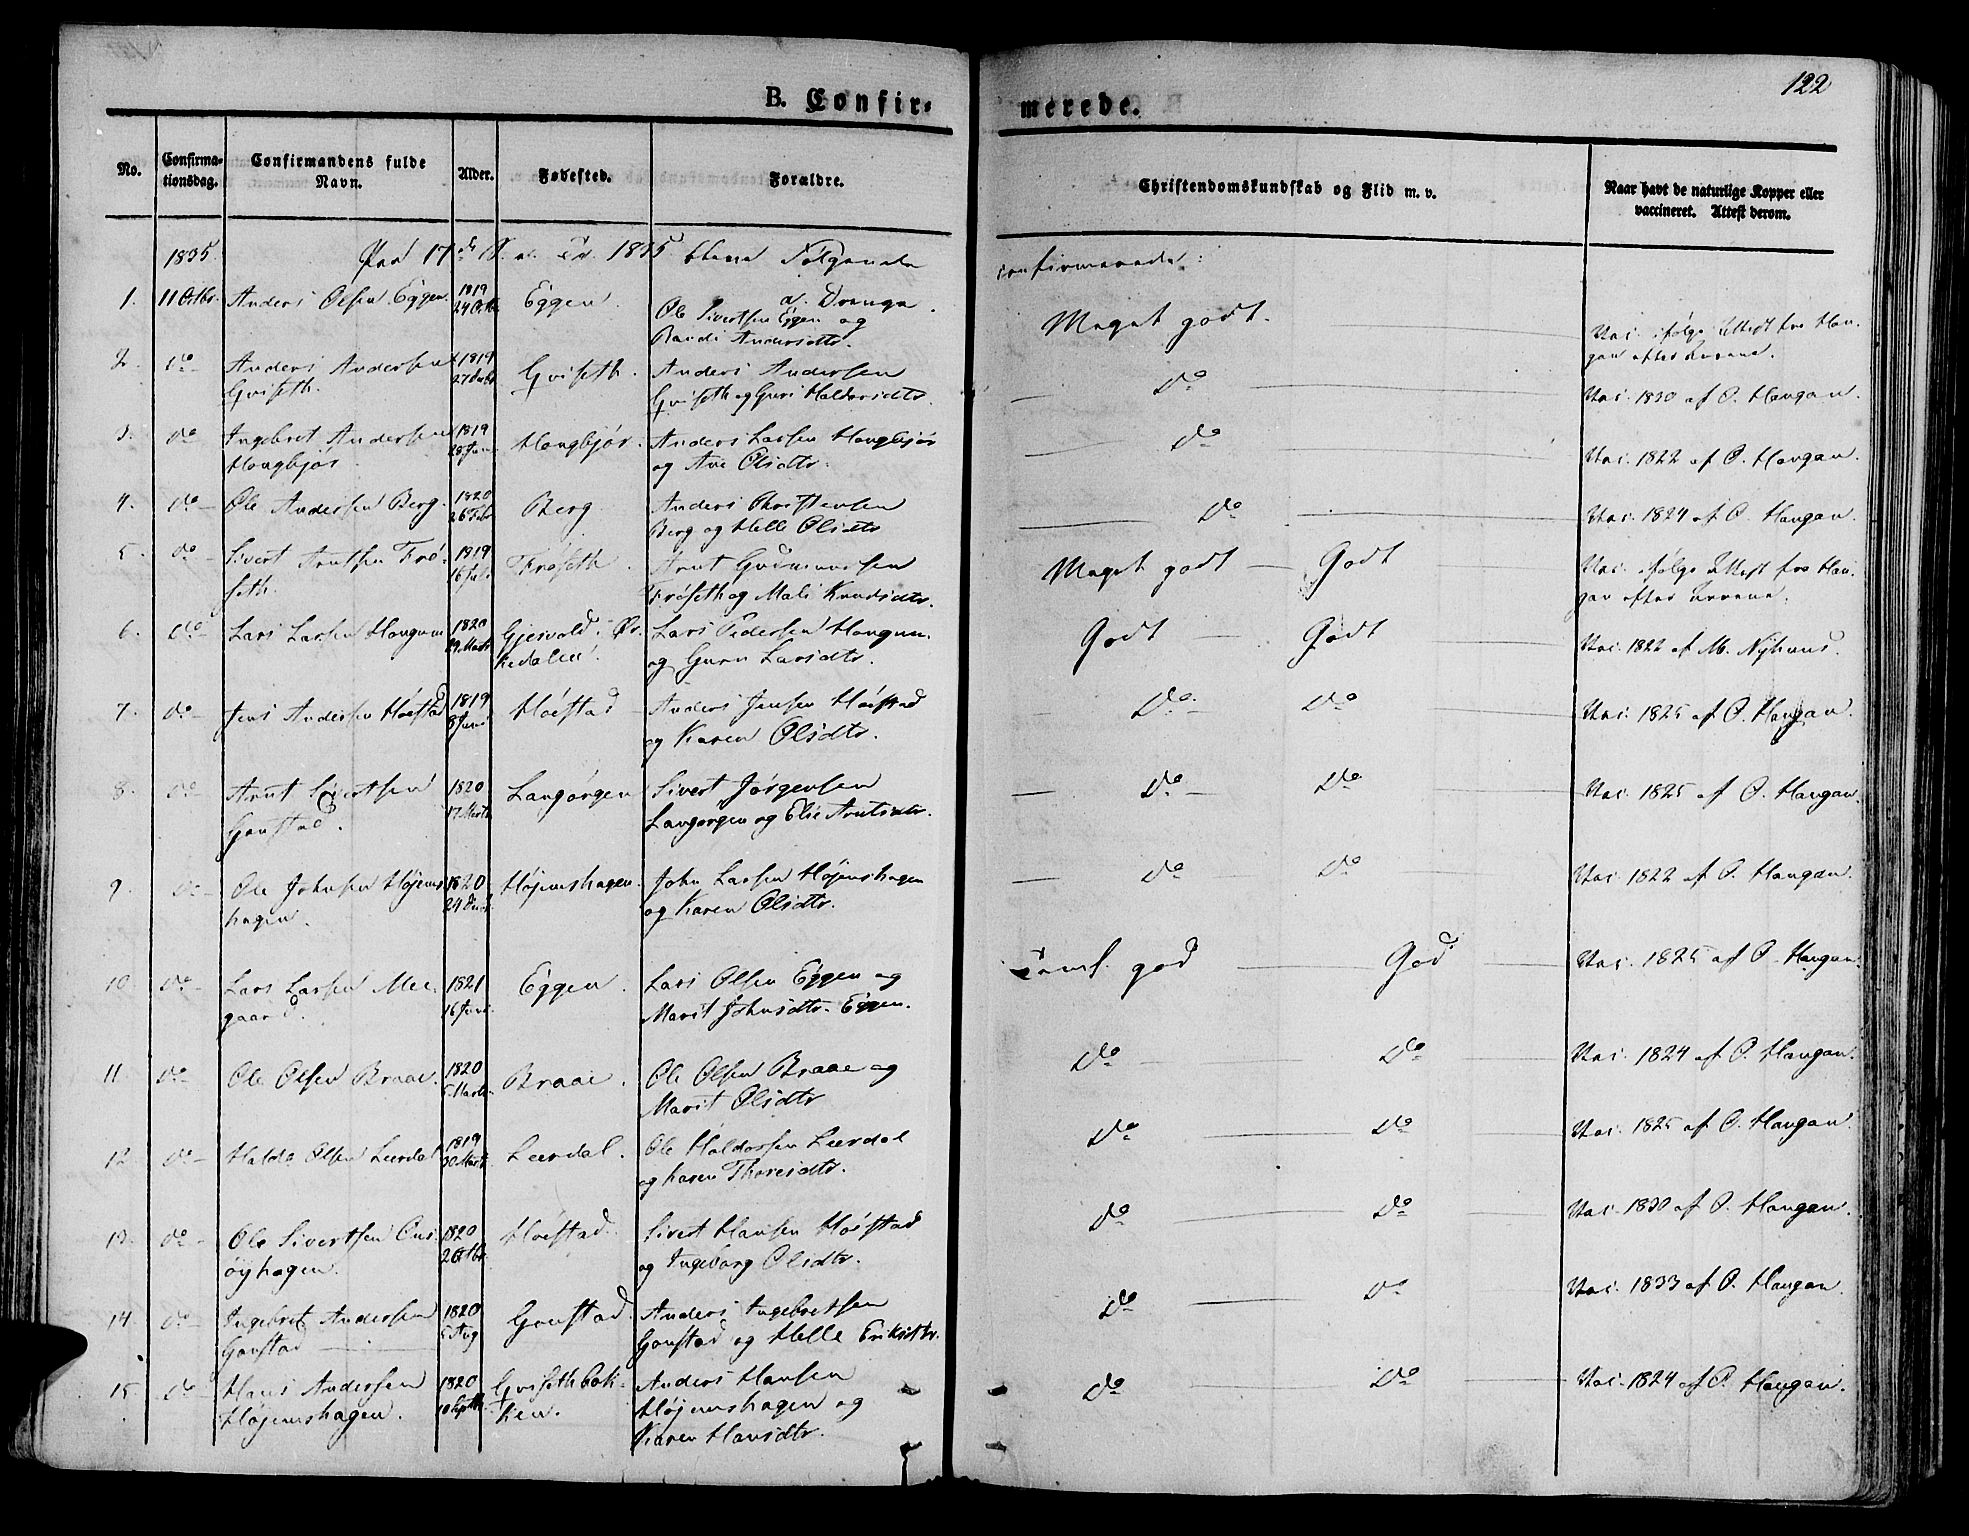 122
B. Confir-
merede.
No.
Confirma-
tionsdag.
Confirmandens fulde
Navn.
Alder.
Fødested.
Forældre.
Christendomskundskab og Flid m. v.
Naar havt de naturlige Kopper eller
vaccineret. Attest derom.
1835 Paa 17de S. e. Tr. 1835 bleve Følgende confirmerede:
a. Drenge
1. 11 Octbr. Anders Olsen Eggen. 1819 24 Octb. Eggen. Ole Sivertsen Eggen og
Randi Andersdtr. Meget godt. Vac. ifølge Attest fra Hau-
gan efter Evene.
2. do Anders Andersen
Gviseth. 1819 27 Decbr Gviseth. Anders Andersen
Gviseth og Guri Haldorsdtr. do Vac. 1830 af O. Haugan.
3. do Ingebret Andersen
Hougbjør 1819 28 Juni Hougbjør. Anders Larsen Hougbjør
og Ane Olsdtr. do Vac. 1822 af O. Haugan.
4. do Ole Andersen Berg. 1820 26 Febr Berg Anders Christensen
Berg og Helle Olsdtr do Vac. 1824 af O. Haugan.
5. do Sivert Arntsen Frø-
seth. 1819 16 Juli Frøseth. Arnt Gudmundsen
Frøseth og Mali Knudsdtr. Meget godt — Godt Vac. ifølge Attest fra Hau-
gan efter Evene.
6. do Lars Larsen Hougum 1820 19 Marts Gjersvold i Ør-
kedalen. Lars Pedersen Hougum.
og Guru Larsdtr. Godt — Godt Vac. 1822 af M. Nyhuus.
7. do Jens Andersen Høestad 1819 8 Juni Høestad Anders Jensen Høestad
og Karen Olsdtr. do do Vac. 1825 af O. Haugan.
8. do Arnt Sivertsen
Gonstad. 1820 17 Marts Langørgen Sivert Jørgensen
Langørgen og Elie Arntsdtr. do do Vac. 1825 af O. Haugan.
9. do Ole Johnsen Højems-
hagen. 1820 24 Højemshagen. John Larsen Højemshagen
og Karen Olsdtr. do do Vac. 1822 af O. Haugan.
10. do Lars Larsen Mee-
gaard. 1821 16 Juni Eggen. Lars Olsen Eggen og
Marit Johnsdtr. Eggen. Teml. god — God Vac. 1825 af O. Haugan.
11. do Ole Olsen Braae. 1820 5 Marts Braae. Ole Olsen Braae og
Marit Olsdtr do do Vac. 1824 af O. Haugan.
12. do Haldo Olsen Leerdal 1819 30 Marts Leerdal. Ole Haldorsen Leerdal
og Karen Thoresdtr. do do Vac. 1825 af O. Haugan.
13. do Ole Sivertsen Ous-
øyhagen. 1820 2 Octbr. Høestad. Sivert Hansen Høestad
og Ingeborg Olsdtr. do do Vac. 1830 af O. Haugan.
14. do Ingebret Andersen
Gonstad 1820 5 Aug Gonstad Anders Ingebretsen
Gonstad og Helle Eriksdtr. do do Vac. 1833 af O. Haugan
15. do Hans Andersen
Højemshagen. 1820 10 Septbr. Gvisethbak-
ken. Anders Hansen
Højemshagen og
Karen Hansdtr. do do Vac. 1824 af O. Haugan.